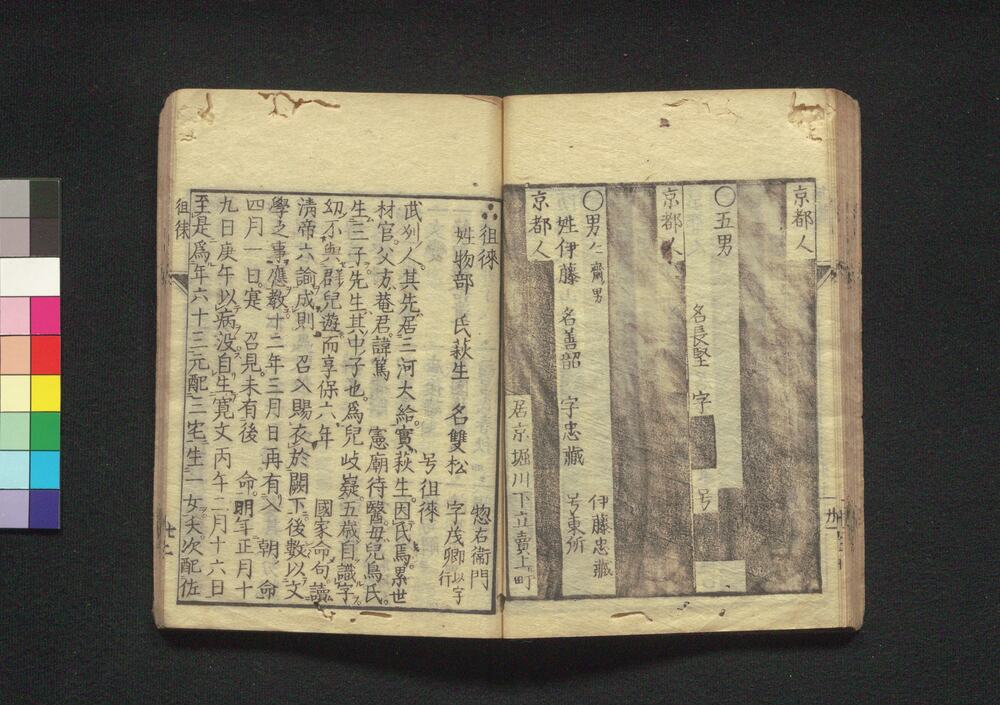 京都人
〇五男
名長堅 字 号
京都人
〇男 仁齋男
姓伊藤 名善韶 字忠藏 号東所
伊藤忠藏
京都人
居京堀川下立賣上町
徂徠
惣右衛門
姓物部 氏荻生 名雙松 字茂卿 以字行
号徂徠
武州人其先居三河大給實荻生因氏焉累世
材官父方菴君諱篤 憲廟待醫毋兒鳥氏
生三子先生其中子也爲兒岐嶷五歳自識字
幼不與群兒遊而享保六年 國家命句讀
清帝六諭成則 召入賜衣於闕下後數以文
學之事應教十二年三月日再有入 朝 命
四月一日寔 召見未有後 命明年正月十
九日庚午以病没自生寛文丙午二月十六日
至是爲年六十三元配三宅生一女夭次配佐
徂徠
七二